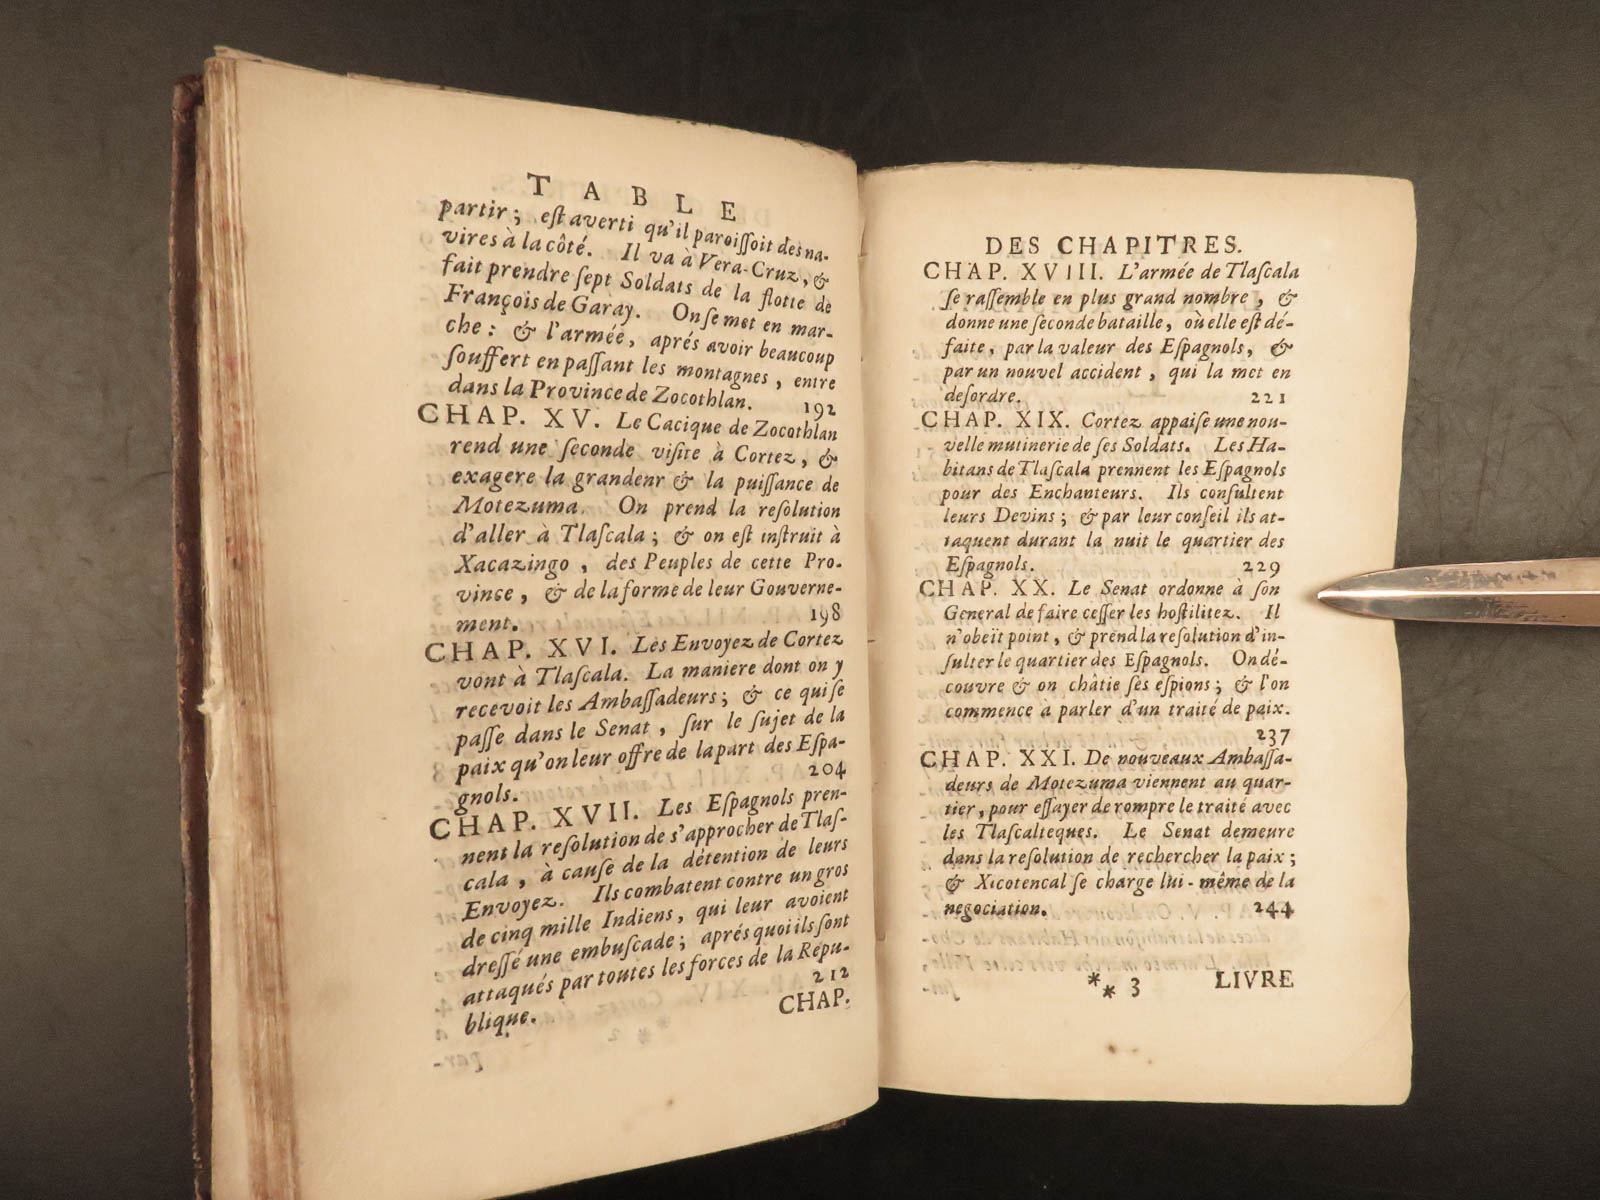 TABLE
partir; eſt averti qu'il paroiſſoit des na-
vires à la côté. Il va à Vera-Cruz, &
fait prendre ſept Soldats de la flotte de
François de Garay. On ſe met en mar-
che: & l'armée, aprés avoir beaucoup
ſouffert en paſſant les montagnes, entre
dans la Province de Zocothlan. 192
CHAP. XV. Le Cacique de Zocothlan
rend une ſeconde viſite à Cortez, &
exagere la grandenr & la puiſſance de
Motezuma. On prend la reſolution
d'aller à Tlaſcala; & on eſt inſtruit à
Xacazingo, des Peuples de cette Pro-
vince, & de la forme de leur Gouverne-
ment. 198
CHAP. XVI. Les Envoyez de Cortez
vont à Tlaſcala. La maniere dont on y
recevoit les Ambaſſadeurs; & ce qui ſe
paſſe dans le Senat, ſur le ſujet de la
paix qu'on leur offre de la part des Eſpa-
gnols. 204
CHAP. XVII. Les Eſpagnols pren-
nent la reſolution de s'approcher de Tlaſ-
cala, à cauſe de la détention de leurs
Envoyez. Ils combatent contre un gros
de cinq mille Indiens, qui leur avoient
dreſſé une embuſcade; aprés quoi ils ſont
attaqués par toutes les forces de la Répu-
blique. 212
CHAP.
DES CHAPITRES.
CHAP. XVIII. L'armée de Tlaſcala
ſe raſſemble en plus grand nombre, &
donne une ſeconde bataille, où elle eſt dé-
faite, par la valeur des Eſpagnols, &
par un nouvel accident, qui la met en
deſordre. 221
CHAP. XIX. Cortez appaiſe une nou-
velle mutinerie de ſes Soldats. Les Ha-
bitans de Tlaſcala prennent les Eſpagnols
pour des Enchanteurs. Ils conſultent
leurs Devins; & par leur conſeil ils at-
taquent durant la nuit le quartier des
Eſpagnols. 229
CHAP. XX. Le Senat ordonne à ſon
General de faire ceſſer les hoſtilitez. Il
n'obeït point, & prend la reſolution d'in-
ſulter le quartier des Eſpagnols. On dé-
couvre & on châtie ſes eſpions; & l'on
commence à parler d'un traité de paix.
237
CHAP. XXI. De nouveaux Ambaſſa-
deurs de Motezuma viennent au quar-
tier, pour eſſayer de rompre le traité avec
les Tlaſcalteques. Le Senat demeure
dans la reſolution de rechercher la paix;
& Xicotencal ſe charge lui-même de la
negociation. 244
** 3 LIVRE